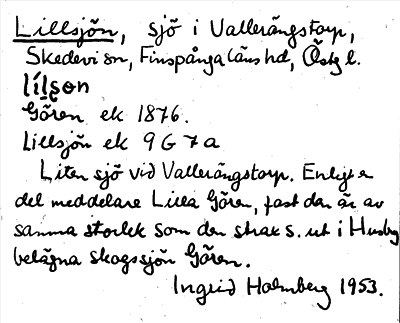 Lillsjön, sjö i Vallerängstorp,
Skedevi sn, Finspånga läns hd, Östg l.
lílsơn
Gören ek 1876.
Lillsjön ek 9 G 7 a
Liten sjö vid Vallerängstorp. Enligt e
del meddelare Lilla Gören, fast den är av
samma storlek som den strax s. ut i Husby
belägna skogssjön Gören.
Ingrid Holmberg 1953.